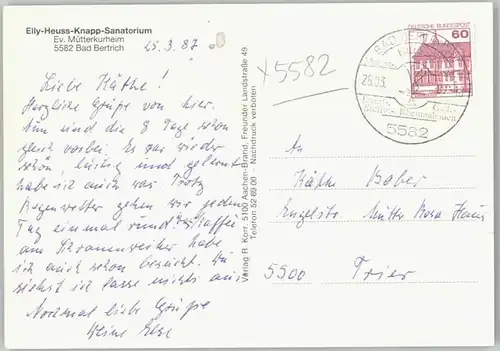 Elly-Heuss-Knapp-Sanatorium
Ev. Mütterkurheim
5582 Bad Bertrich
25.3.87
Liebe Käthe!
Herzliche Grüße von hier.
Nun sind die 8 Tage schon
gleich vorbei. Es war wieder
schön, lustig und gelernt
habe ich auch was. Trotz
Regenwetter gehen wir jeden
Tag einmal rund. Kaffee
am habe
ich auch schon bezahlt. Du
siehst ich lasse nichts aus
Nochmal liebe Grüße
Deine Else
Verlag R. Korr, 5100 Aachen-Brand, Freunder Landstraße 49
Telefon 52 69 00 Nachdruck verboten
x 5582
DEUTSCHE BUNDESPOST
60
BAD BERTRICH
25.03.
5582
An
Käthe Bober
Mutter Rosa Haus
5500 Trier